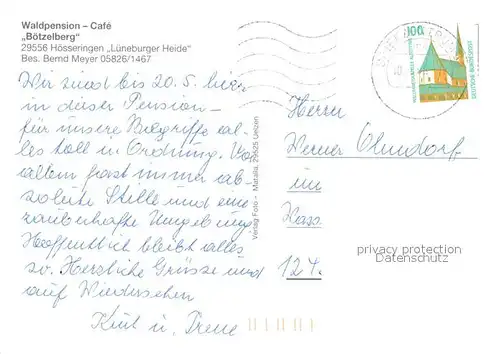 Waldpension – Café
„Bötzelberg"
29556 Hösseringen „Lüneburger Heide"
Bes. Bernd Meyer 05826/1467
Wir sind bis 20.5. hier
in dieser Pension –
für unsere Begriffe al-
les toll in Ordnung. Vor
allem fast immer ab-
solute Stille und eine
zauberhafte Umgebung
Hoffentlich bleibt alles
so. Herzliche Grüsse und
auf Wiedersehen
Kurt u. Irene
Verlag Foto - Matalla, 29525 Uelzen
100
DEUTSCHE BUNDESPOST
Herrn
Werner Ohndorf
im
Haus
124.
privacy protection
Datenschutz